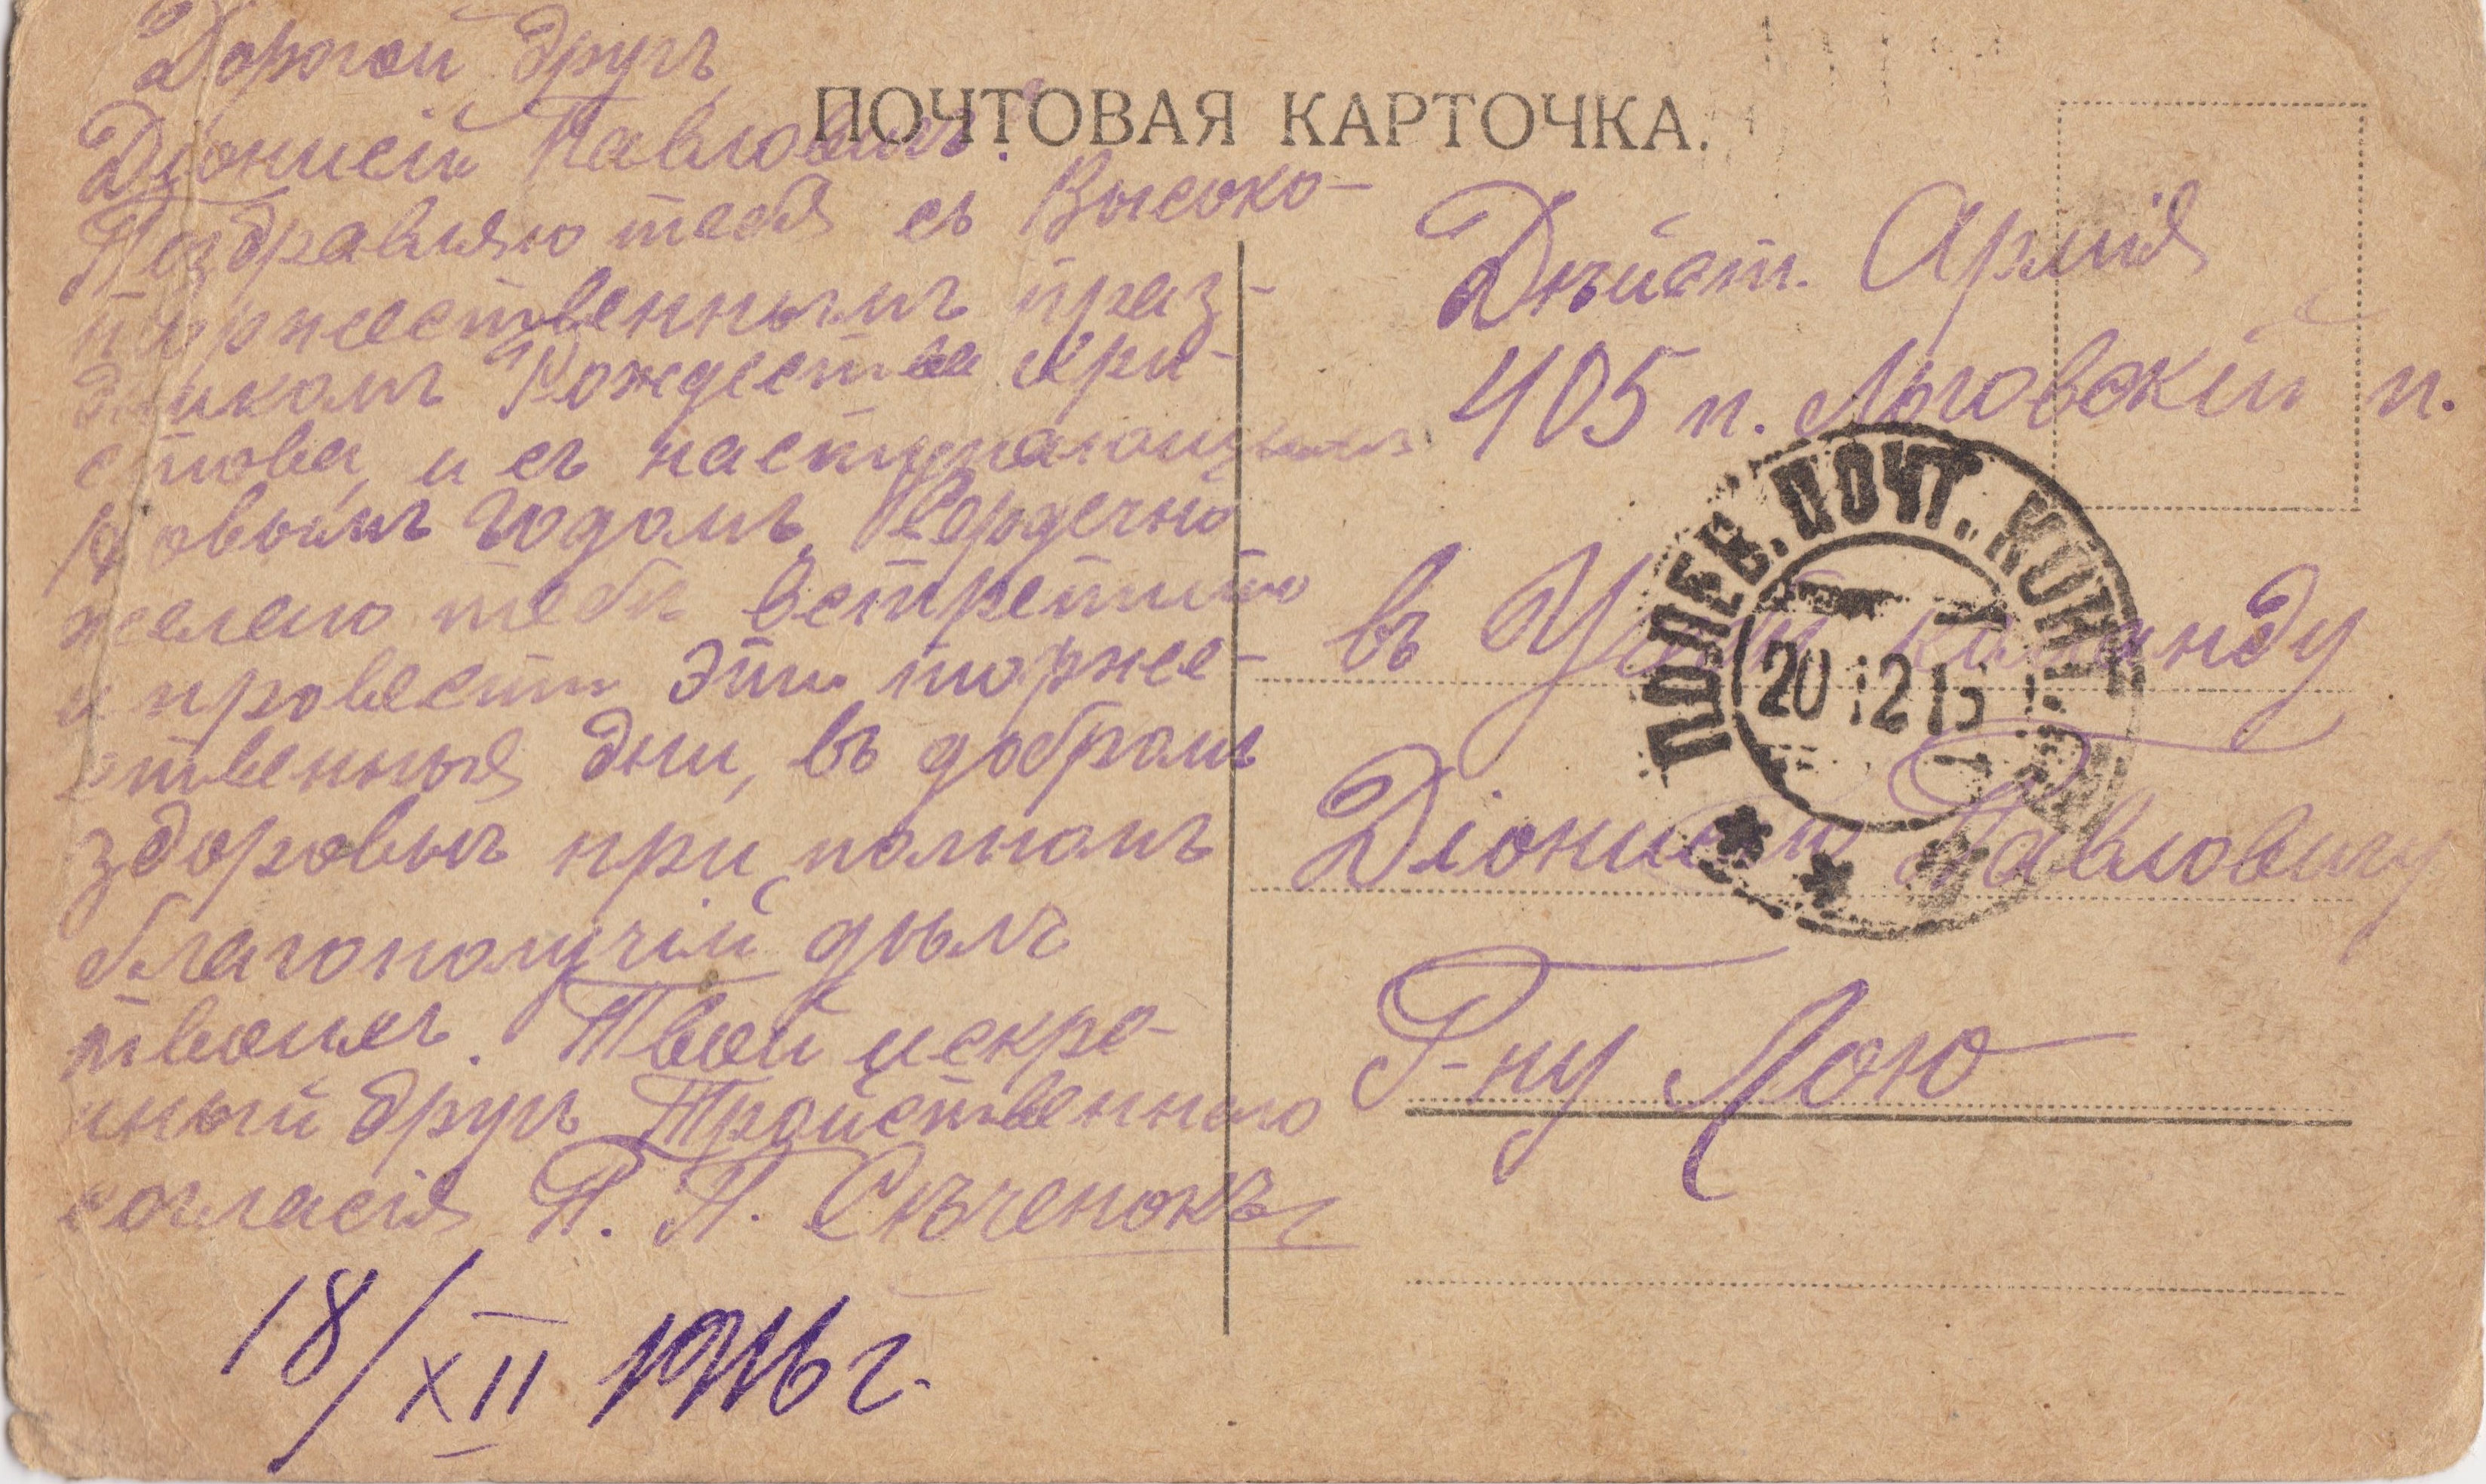 ПОЧТОВАЯ КАРТОЧКА.
Дорогой другъ
Діонисій Павловичъ.
Поздравляю тебя съ Высоко-
торжественнымъ праз-
дникомъ Рождества Хри-
стова, и съ наступающимъ
Новымъ Годомъ, Сердечно
желаю тебѣ встретить
и провести эти торже-
ственныя дни, въ добромъ
здоровьи при полномъ
благополучіи
твоихъ. Твой искре-
нный другъ Тройственного
согласія П. П. Сѣченокъ
18/XII 1916 г.
Дѣйст. Армія
405 п. Льговскій п.
въ команду
Діонисію Павловичу
Г-ну Лою
ПОЛЕВ. ПОЧТ. КОНТ.
20 12 16